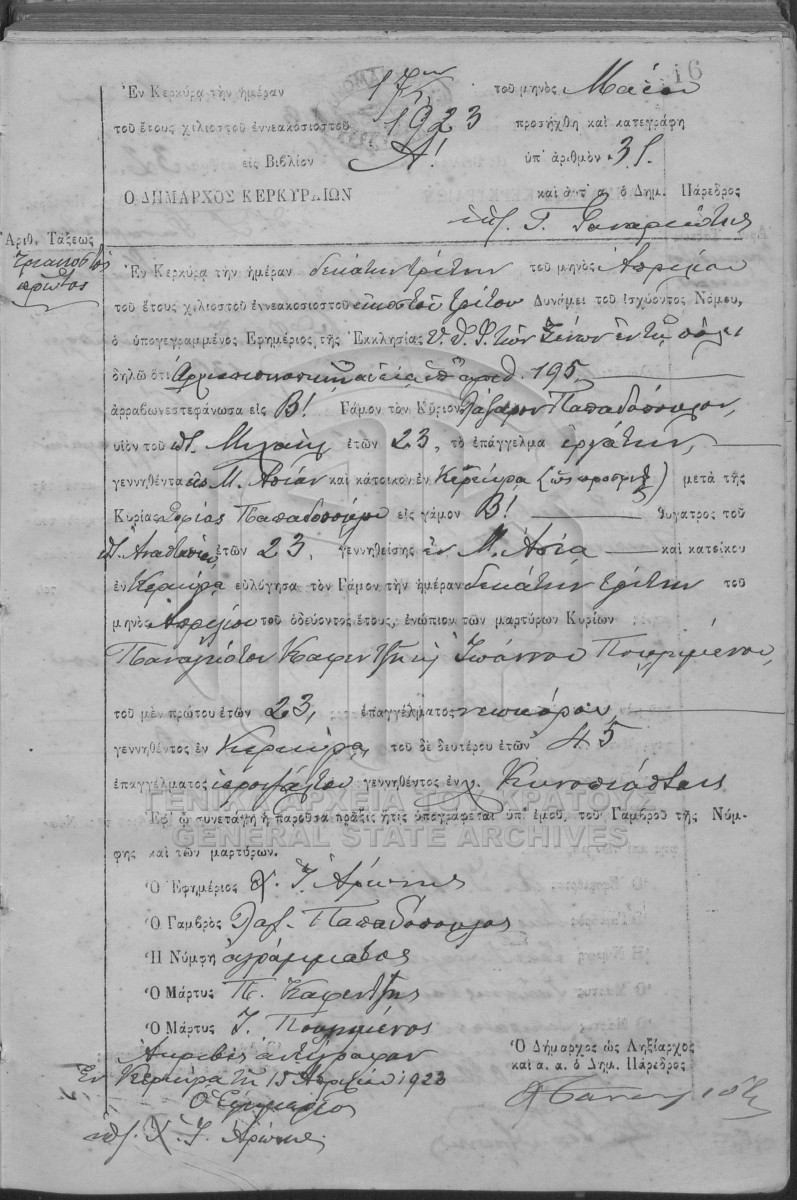 16
Ἐν Κερκύρᾳ τὴν ἡμέραν 17ην τοῦ μηνὸς Μαΐου
τοῦ ἔτους χιλιοστοῦ ἐννεακοσιοστοῦ 1923 προσήχθη καὶ κατεγράφη
εἰς Βιβλίον Α! ὑπ' ἀριθμὸν 31.
Ο ΔΗΜΑΡΧΟΣ ΚΕΡΚΥΡΑΙΩΝ καὶ ἀντ' α. ὁ Δημ. Πάρεδρος
Ἀριθ. Τάξεως
τριακοστὸς
πρῶτος
Ἐν Κερκύρᾳ τὴν ἡμέραν δεκάτην τρίτην τοῦ μηνὸς Ἀπριλίου
τοῦ ἔτους χιλιοστοῦ ἐννεακοσιοστοῦ εἰκοστοῦ τρίτου Δυνάμει τοῦ ἰσχύοντος Νόμου,
ὁ ὑπογεγραμμένος Ἐφημέριος τῆς Ἐκκλησίας Υ. Θ. Φ. τῶν Ξένων ἐν τῇ πόλει
δηλῶ ὅτι Ἀρχιεπισκοπικῇ ἀδείᾳ ὑπ' ἀριθ. 195
ἀρραβωνεστεφάνωσα εἰς Β! Γάμον τὸν Κύριον Λάζαρον Παπαδόπουλον,
υἱὸν τοῦ Μιχαὴλ ἐτῶν 23, τὸ ἐπάγγελμα ἐργάτην,
γεννηθέντα εἰς Μ. Ἀσίαν καὶ κάτοικον ἐν Κερκύρᾳ (ὡς πρόσφυξ) μετὰ τῆς
Κυρίας Σοφίας Παπαδοπούλου εἰς γάμον Β! θυγατρὸς τοῦ
Ἀναστασίου ἐτῶν 23, γεννηθείσης ἐν Μ. Ἀσίᾳ καὶ κατοίκου
ἐν Κερκύρᾳ εὐλόγησα τὸν Γάμον τὴν ἡμέραν δεκάτην τρίτην τοῦ
μηνὸς Ἀπριλίου τοῦ ὁδεύοντος ἔτους, ἐνώπιον τῶν μαρτύρων Κυρίων
Παναγιώτου Καφεντζῆ κ Ἰωάννου Πουλημένου,
τοῦ μὲν πρώτου ἐτῶν 23, ἐπαγγέλματος νεωκόρου,
γεννηθέντος ἐν Κερκύρᾳ, τοῦ δὲ δευτέρου ἐτῶν 45
ἐπαγγέλματος ἱεροψάλτου γεννηθέντος ἐν χ. Κυνοπιάσταις
ΓΕΝΙΚΑ ΑΡΧΕΙΑ ΤΟΥ ΚΡΑΤΟΥΣ
GENERAL STATE ARCHIVES
Ἐφ' ᾧ συνετάγη ἡ παροῦσα πρᾶξις ἥτις ὑπογράφεται ὑπ' ἐμοῦ, τοῦ Γαμβροῦ τῆς Νύμ-
φης καὶ τῶν μαρτύρων.
Ὁ Ἐφημέριος Χ. Ἰ. Ἀρώνης
Ὁ Γαμβρὸς Λαζ. Παπαδόπουλος
Ἡ Νύμφη ἀγράμματος
Ὁ Μάρτυς Π. Καφεντζῆς
Ὁ Μάρτυς Ἰ. Πουλημένος
Ἀκριβὲς ἀντίγραφον
Ἐν Κερκύρᾳ τῇ 15 Ἀπριλίου 1923
Ὁ Ἐφημέριος
Χ. Ἰ. Ἀρώνης
Ὁ Δήμαρχος ὡς Ληξίαρχος
καὶ α. α. ὁ Δημ. Πάρεδρος